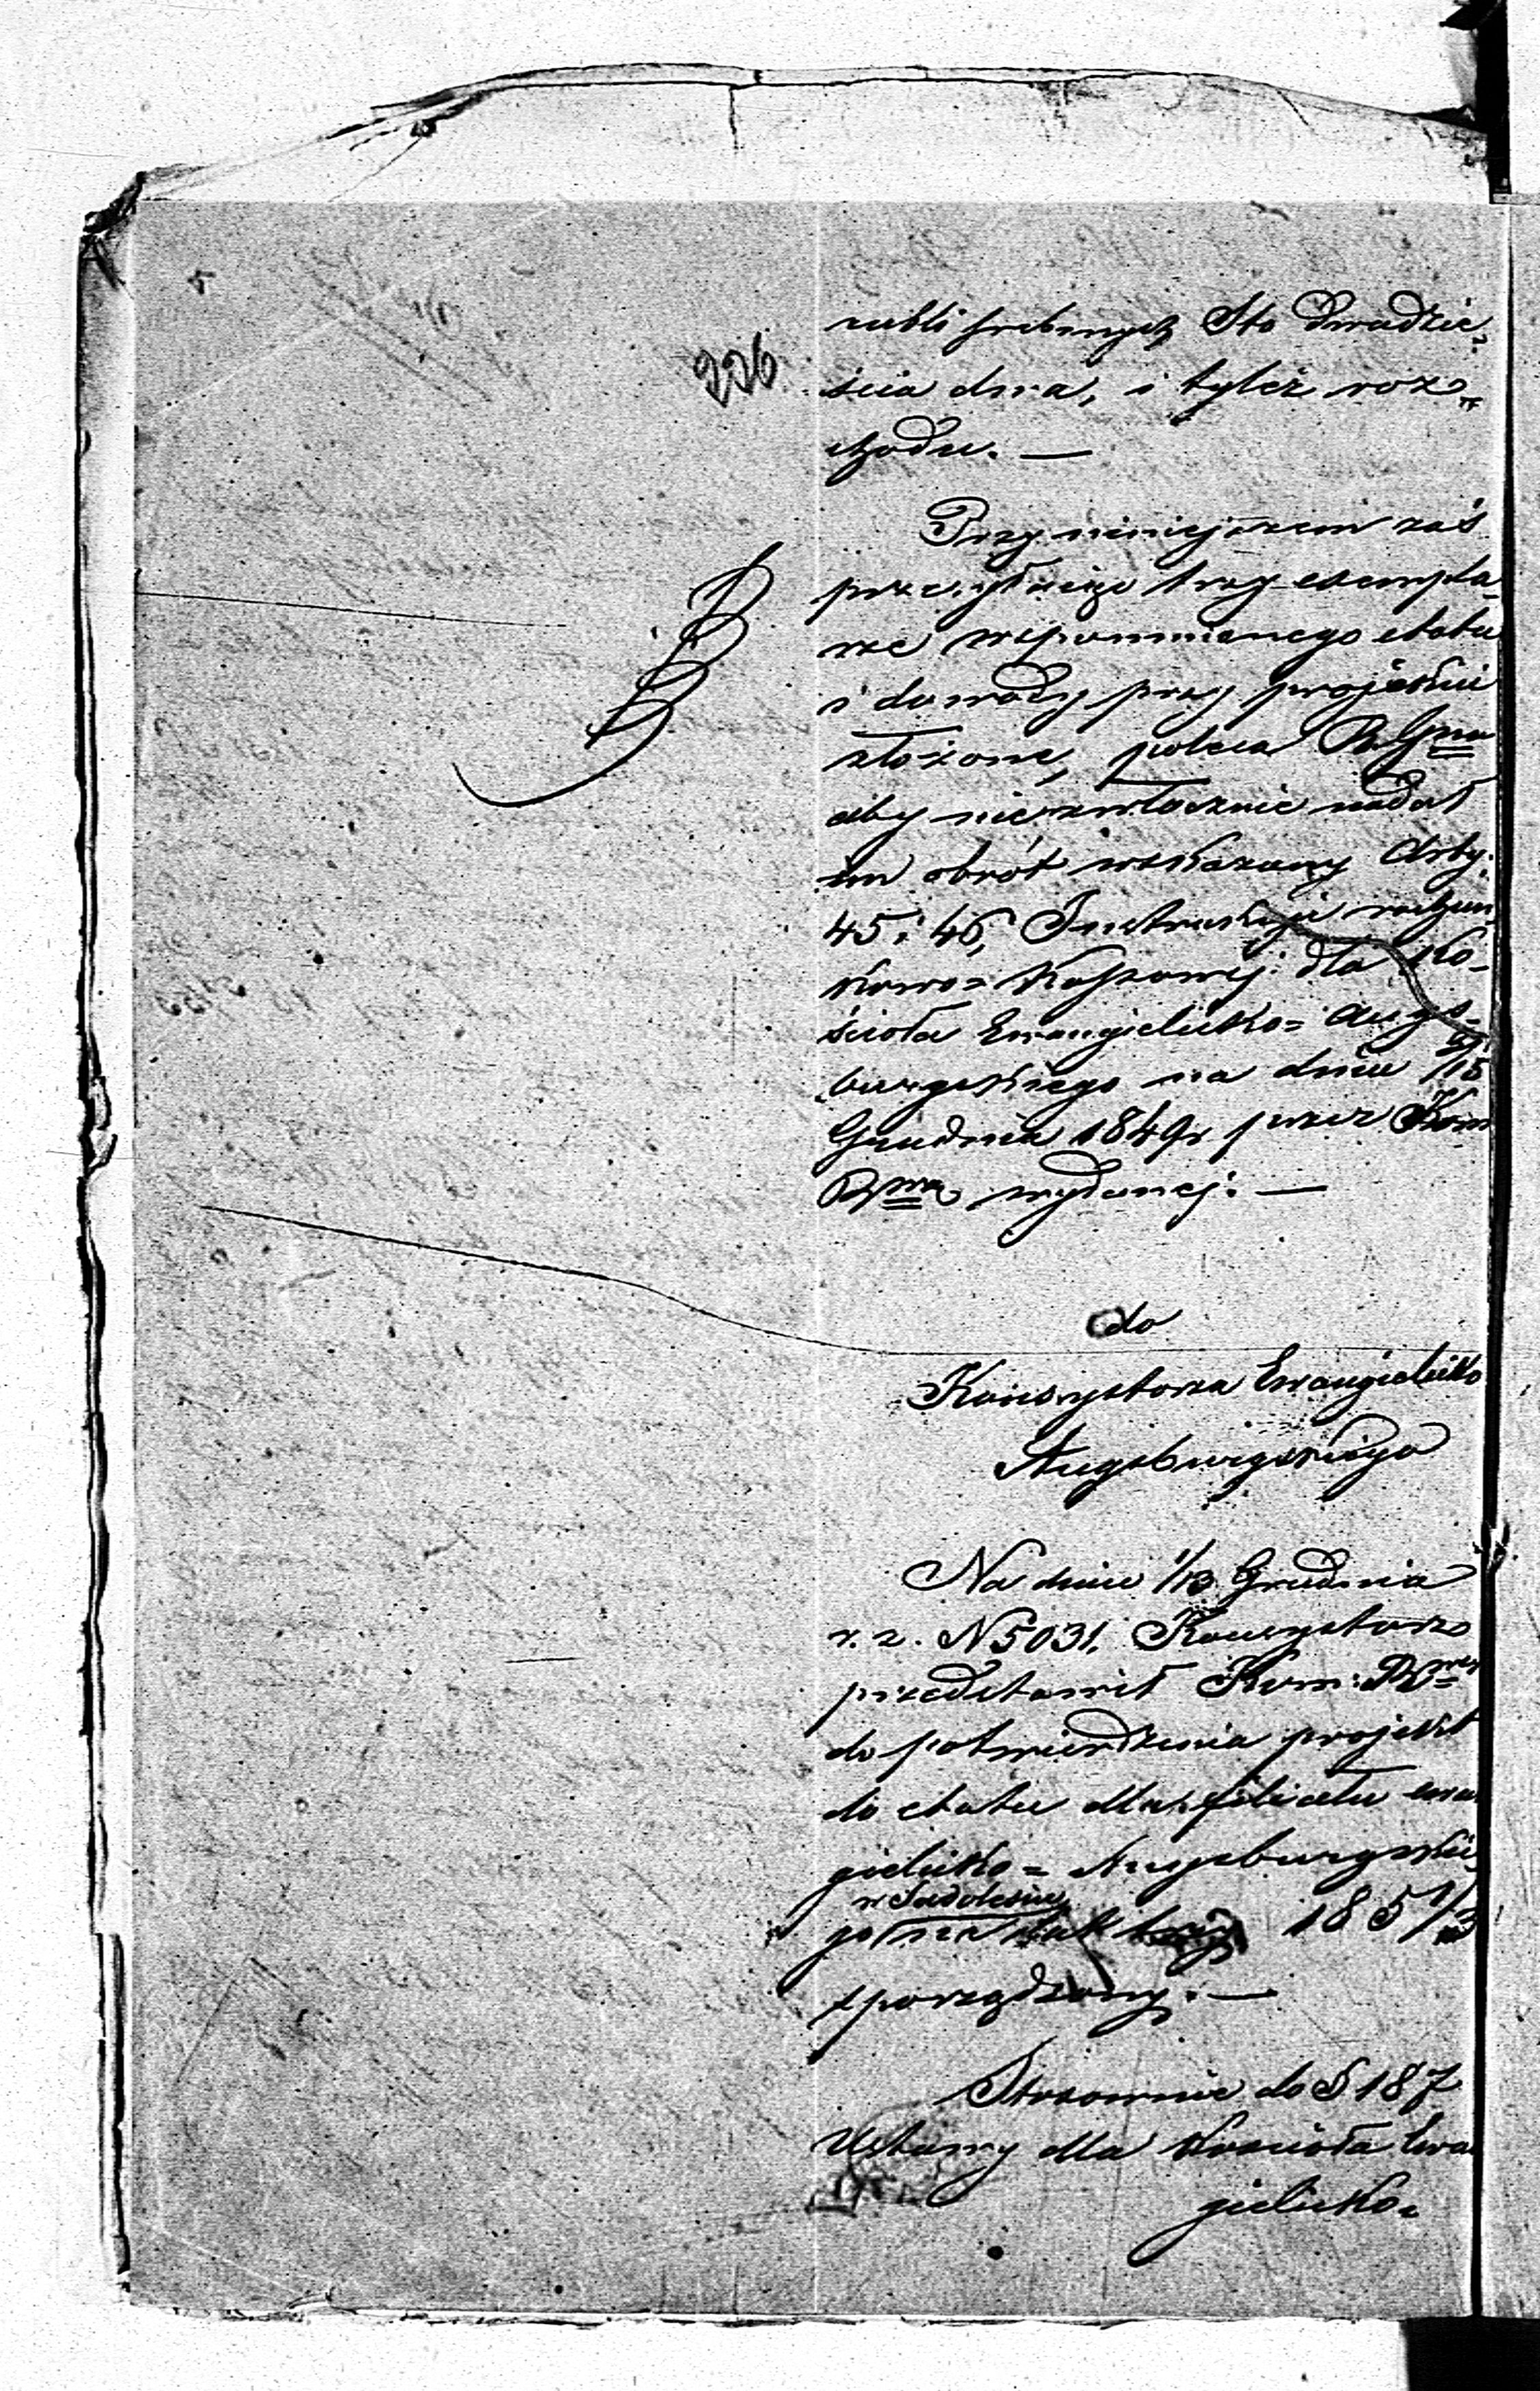 226
rubli srebrnych Sto dwadzie-
ścia dwa, i tyleż roz-
chodu. —
Przy niniejszem zaś
przesyłając trzy exempla-
rze wspomnionego etatu
i dowody przy projekcie
złożone, poleca R. Gna
aby niezwłocznie nadał
im obrót wskazany Arty.
45 i 46, Instrukcyi rachun-
kowo=Kassowej dla Ko-
ścioła Ewangielicko=Augs-
burgskiego na dniu 3/15
Grudnia 1849 r przez Kom
Rwą wydanej. —
do
Konsystorza Ewangielicko
Augsburgskiego
Na dniu 1/13 Grudnia
r. z. N 5031, Konsystorz
przedstawił Kom: Rwej
do potwierdzenia projekt
do etatu dla filiału ewan
gielicko=Augsburgskie
w Sadoleśiu
go na lat trzy 1851/3
sporządzony. —
Stosownie do § 187
Ustawy dla Kościoła Ewan
gielicko=